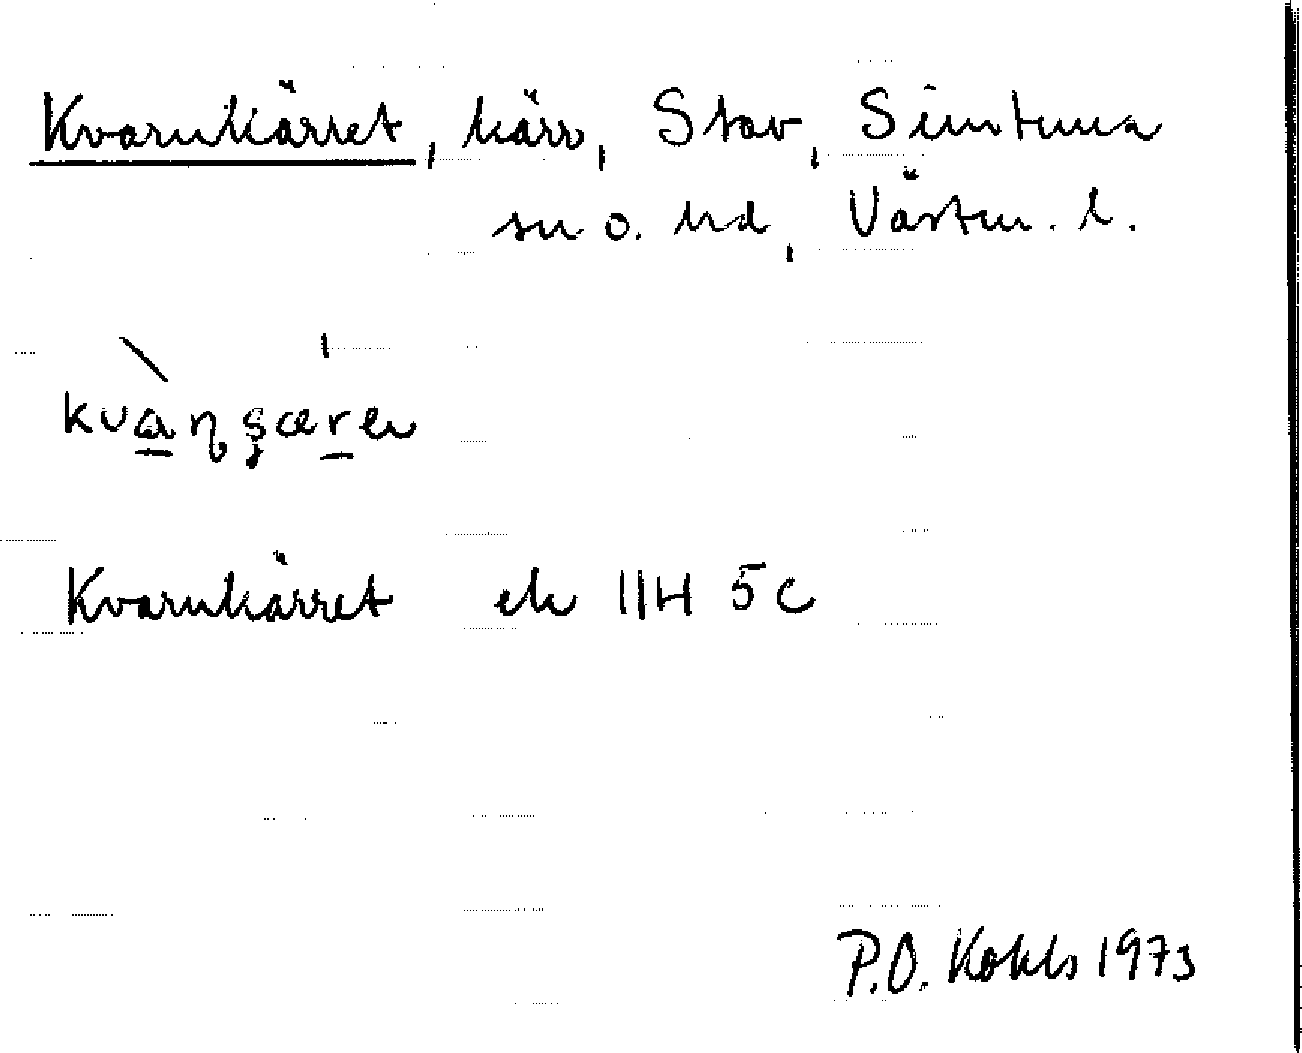 Kvarnkärret, kärr, Stav, Simtuna
sn o. hd, Västm. l.
kvàɳşæren
Kvarnkärret ek 11H 5c
P.O. 1973